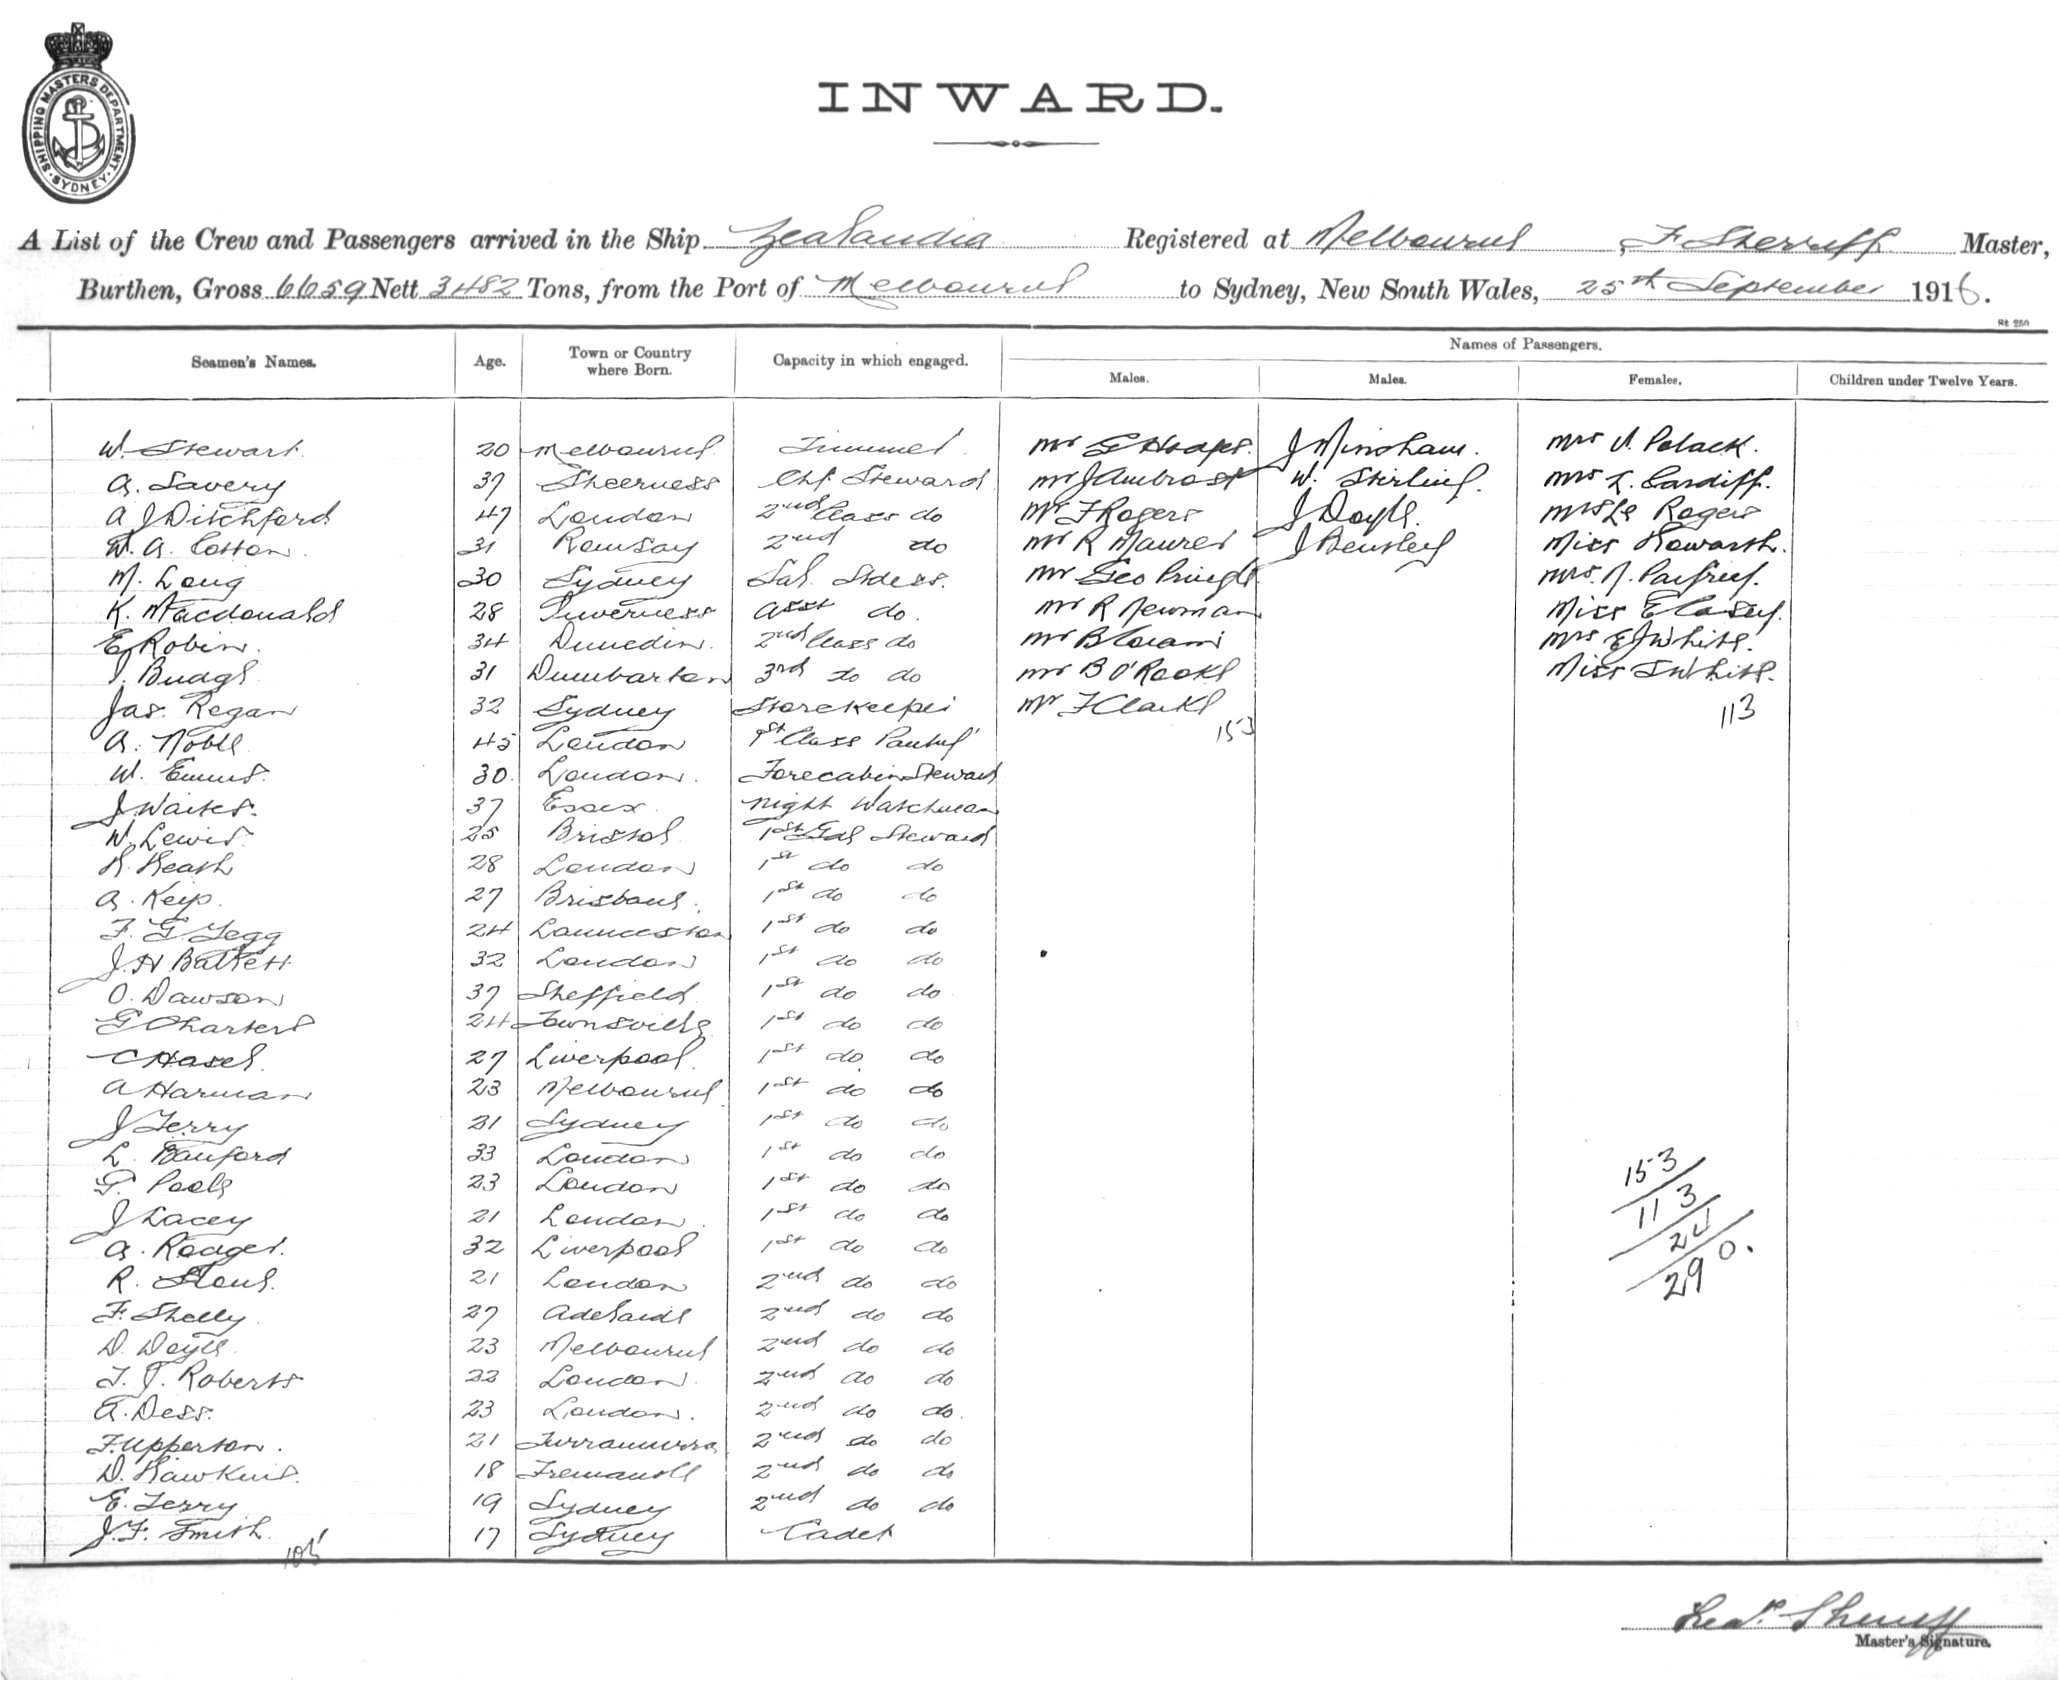 SHIPPING MASTERS DEPARTMENT · SYDNEY ·
INWARD.
A List of the Crew and Passengers arrived in the Ship Zealandia Registered at Melbourne, F. Sherriff Master,
Burthen, Gross 6659 Nett 3482 Tons, from the Port of Melbourne to Sydney, New South Wales, 25th September 1916.
St 250
Seamen's Names. Age. Town or Country where Born. Capacity in which engaged. Names of Passengers.
Males. Males. Females. Children under Twelve Years.
W. Stewart 20 Melbourne Trimmer Mr G Hodges. J Minsham. Mrs V. Polack.
A. Savery 37 Sheerness Chf. Steward Mr J Ambrose W. Stirling. Mrs L. Cardiff.
A J Ditchford 47 London 2nd Class do Mr F Rogers J Doyle. Mrs Rogers
W. A. Cotton. 31 Ramsay 2nd do Mr R Maurer J Bensley Miss Howarth.
M. Long 30 Sydney Sal. Stdess. Mr Geo Pringle Mrs. N. Palfrey.
K. Macdonald 28 Inverness Asst do. Mr R Newman Miss E Casey.
E Robin. 34 Dunedin. 2nd Class do Mr B Mrs E J White.
Buage 31 Dumbarton 3rd do do Mr B O'Rooke Miss I White.
Jas. Regan 32 Sydney Storekeeper Mr F Clarke 113
A. Noble 45 London 1st Class Pantry 153
W. Emms. 30. London. Forecabin Steward
J. Waites. 37 Essex. Night Watchman
W. Lewis. 25 Bristol 1st Gal Steward
H. Heath 28 London 1st do do
A. Keip. 27 Brisbane. 1st do do
F. G. Tegg 24 Launceston 1st do do
J. H Balkett 32 London 1st do do
O. Dawson 37 Sheffield. 1st do do
G Charters 24 Townsville 1st do do
C Hasel. 27 Liverpool. 1st do do
A Harman 23 Melbourne 1st do do
J Terry 21 Sydney 1st do do
L. Banford 33 London 1st do do
G. Poole 23 London 1st do do
J Lacey 21 London. 1st do do
A. Rodger. 32 Liverpool 1st do do
R. Stone. 21 London 2nd do do
F. Shelly 27 Adelaide 2nd do do
D. Doyle 23 Melbourne 2nd do do
T. J. Roberts 22 London 2nd do do
A. Dess. 23 London. 2nd do do.
F. Upperton. 21 Turramurra 2nd do do
D. Hawkins. 18 Fremantle 2nd do do
E. Terry 19 Sydney 2nd do do
J. F. Smith. 17 Sydney Cadet
105
153
113
24
290.
Sherriff
Master's Signature.